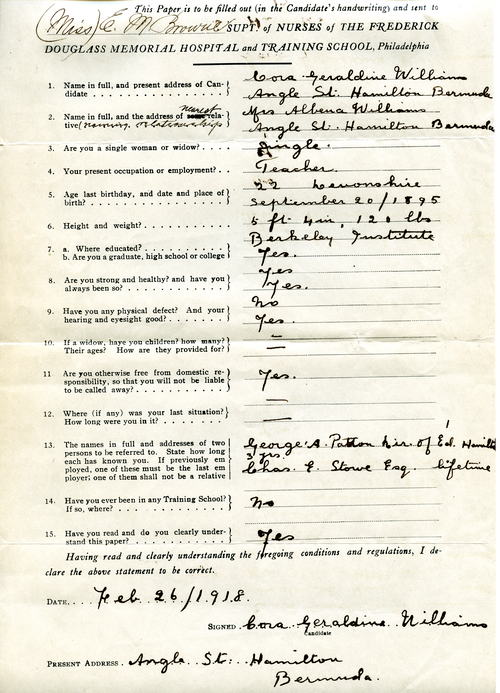 This Paper is to be filled out (in the Candidate's handwriting) and sent to
(Miss) E. M. Brown SUPT. of NURSES of THE FREDERICK
DOUGLASS MEMORIAL HOSPITAL and TRAINING SCHOOL, Philadelphia
1. Name in full, and present address of Can-
didate
Cora Geraldine Williams
Angle St. Hamilton Bermuda
2. Name in full, and the address of nearest rela-
tive (naming relationship)
Mrs Albena Williams
Angle St. Hamilton Bermuda
3. Are you a single woman or widow?
Single.
4. Your present occupation or employment?
Teacher.
5. Age last birthday, and date and place of
birth?
22 Devonshire
September 20/1895
6. Height and weight?
5 ft 4in, 120 lbs
7. a. Where educated?
b. Are you a graduate, high school or college
Berkeley Institute
Yes.
8. Are you strong and healthy? and have you
always been so?
Yes
Yes.
9. Have you any physical defect? And your
hearing and eyesight good?
No
Yes.
10. If a widow, have you children? how many?
Their ages? How are they provided for?
—
—
11 Are you otherwise free from domestic re-
sponsibility, so that you will not be liable
to be called away?
Yes.
12. Where (if any) was your last situation?
How long were you in it?
—
—
13. The names in full and addresses of two
persons to be referred to. State how long
each has known you. If previously em
ployed, one of these must be the last em
ployer; one of them shall not be a relative
George A. Patton Dir. of Ed. Hamilt
3 yrs.
Chas. E. Stowe Esq. lifetime
14. Have you ever been in any Training School?
If so, where?
No
15. Have you read and do you clearly under-
stand this paper?
Yes
Having read and clearly understanding the foregoing conditions and regulations, I de-
clare the above statement to be correct.
DATE. Feb 26/1918.
SIGNED Cora Geraldine Williams
Candidate
PRESENT ADDRESS. Angle St. Hamilton
Bermuda.